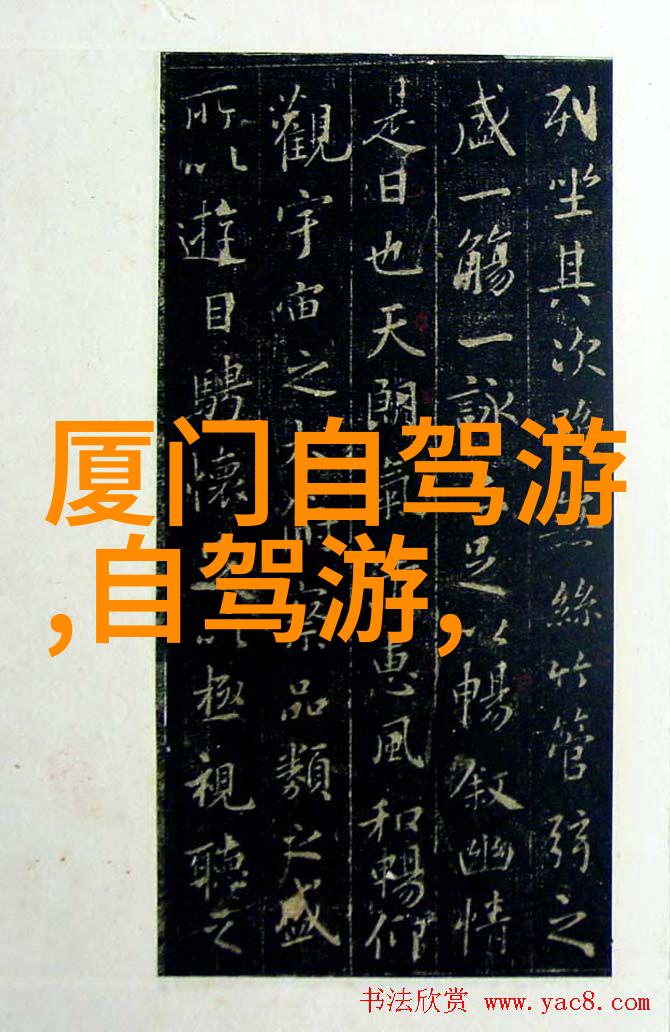 厦门自驾游
,自驾游,
列坐其次雖無絲竹管弦之
盛一觴一詠足以暢叙幽情
是日也天朗氣惠風和暢仰
觀宇宙之察品類之盛
所以遊目騁懷以極視聽之
书法欣赏 www.yac8.com